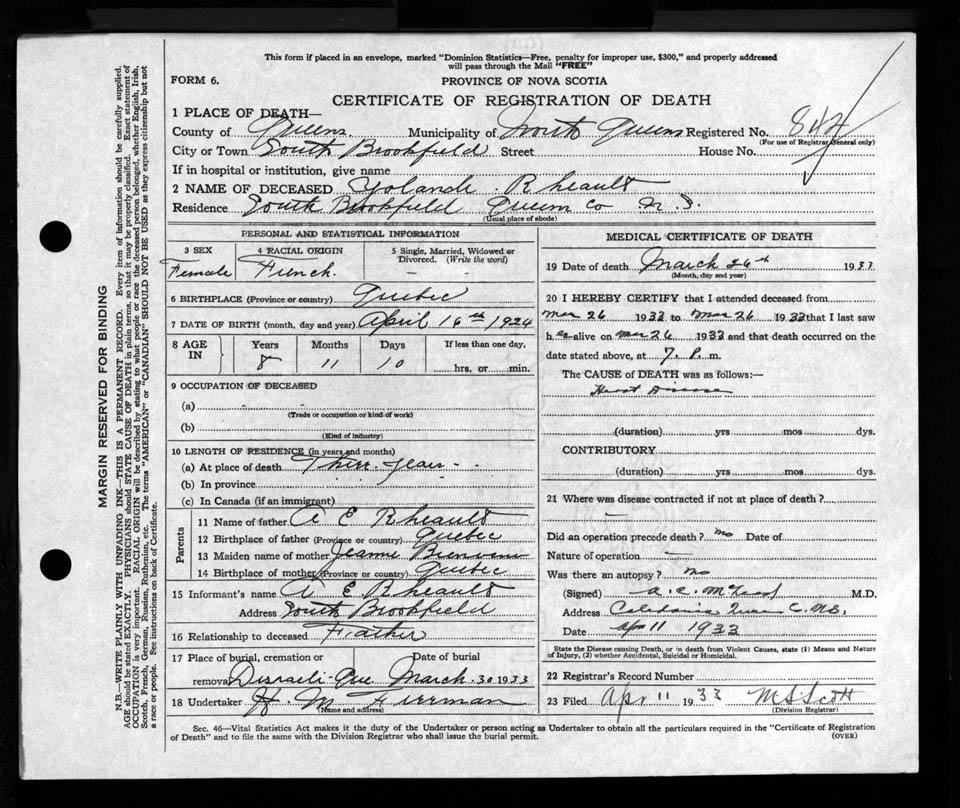 This form if placed in an envelope, marked "Dominion Statistics—Free, penalty for improper use, $300," and properly addressed
will pass through the Mail "FREE"
FORM 6.
PROVINCE OF NOVA SCOTIA
CERTIFICATE OF REGISTRATION OF DEATH
1 PLACE OF DEATH—
County of Queens Municipality of North Queens Registered No.
(For use of Registrar General only)
City or Town South Brookfield Street House No.
If in hospital or institution, give name
2 NAME OF DECEASED Yolande Rheault
Residence South Brookfield Queens Co N.S.
(Usual place of abode)
PERSONAL AND STATISTICAL INFORMATION
3 SEX 4 RACIAL ORIGIN 5 Single, Married, Widowed or
Divorced. (Write the word)
Female French - -
6 BIRTHPLACE (Province or country) Quebec
7 DATE OF BIRTH (month, day and year) April 16th 1924
8 AGE IN Years Months Days If less than one day,
8 11 10 hrs. or min.
9 OCCUPATION OF DECEASED
(a) - -
(Trade or occupation or kind of work)
(b)
(Kind of industry)
10 LENGTH OF RESIDENCE (in years and months)
(a) At place of death
(b) In province
(c) In Canada (if an immigrant)
Parents
11 Name of father A E Rheault
12 Birthplace of father (Province or country) Quebec
13 Maiden name of mother Jeanne
14 Birthplace of mother (Province or country) Quebec
15 Informant's name A E Rheault
Address South Brookfield
16 Relationship to deceased Father
17 Place of burial, cremation or Date of burial
removal Disraeli-Que March 30 1933
18 Undertaker H. M. Freeman
(Name and address)
MEDICAL CERTIFICATE OF DEATH
19 Date of death March 26th 1933
(Month, day and year)
20 I HEREBY CERTIFY that I attended deceased from
Mar 26 1933 to Mar 26 1933 that I last saw
h er alive on Mar 26 1933 and that death occurred on the
date stated above, at 7. P. m.
The CAUSE of DEATH was as follows:—
Heart Disease
(duration) yrs mos dys.
CONTRIBUTORY
(duration) yrs. mos. dys.
21 Where was disease contracted if not at place of death?
—
Did an operation precede death? no Date of
Nature of operation —
Was there an autopsy? no
(Signed) A. C. M.D.
Address Caledonia Queens C. N.S.
Date Apr 11 1933
State the Disease causing Death, or in death from Violent Causes, state (1) Means and Nature
of Injury, (2) whether Accidental, Suicidal or Homicidal.
22 Registrar's Record Number
23 Filed Apr 11 1933 M S Scott
(Division Registrar)
Sec. 46—Vital Statistics Act makes it the duty of the Undertaker or person acting as Undertaker to obtain all the particulars required in the "Certificate of Registration
of Death" and to file the same with the Division Registrar who shall issue the burial permit.
(OVER)
MARGIN RESERVED FOR BINDING
N.B.—WRITE PLAINLY WITH UNFADING INK—THIS IS A PERMANENT RECORD. Every item of information should be carefully supplied.
AGE should be stated EXACTLY. PHYSICIANS should STATE CAUSE OF DEATH in plain terms, so that it may be properly classified. Exact statement of
OCCUPATION is very important. RACIAL ORIGIN will be described by stating to what people or race the deceased person belonged, whether English, Irish,
Scotch, French, German, Russian, Ruthenian, etc. The terms "AMERICAN" or "CANADIAN" SHOULD NOT BE USED as they express citizenship but not
a race or people. See instructions on back of Certificate.